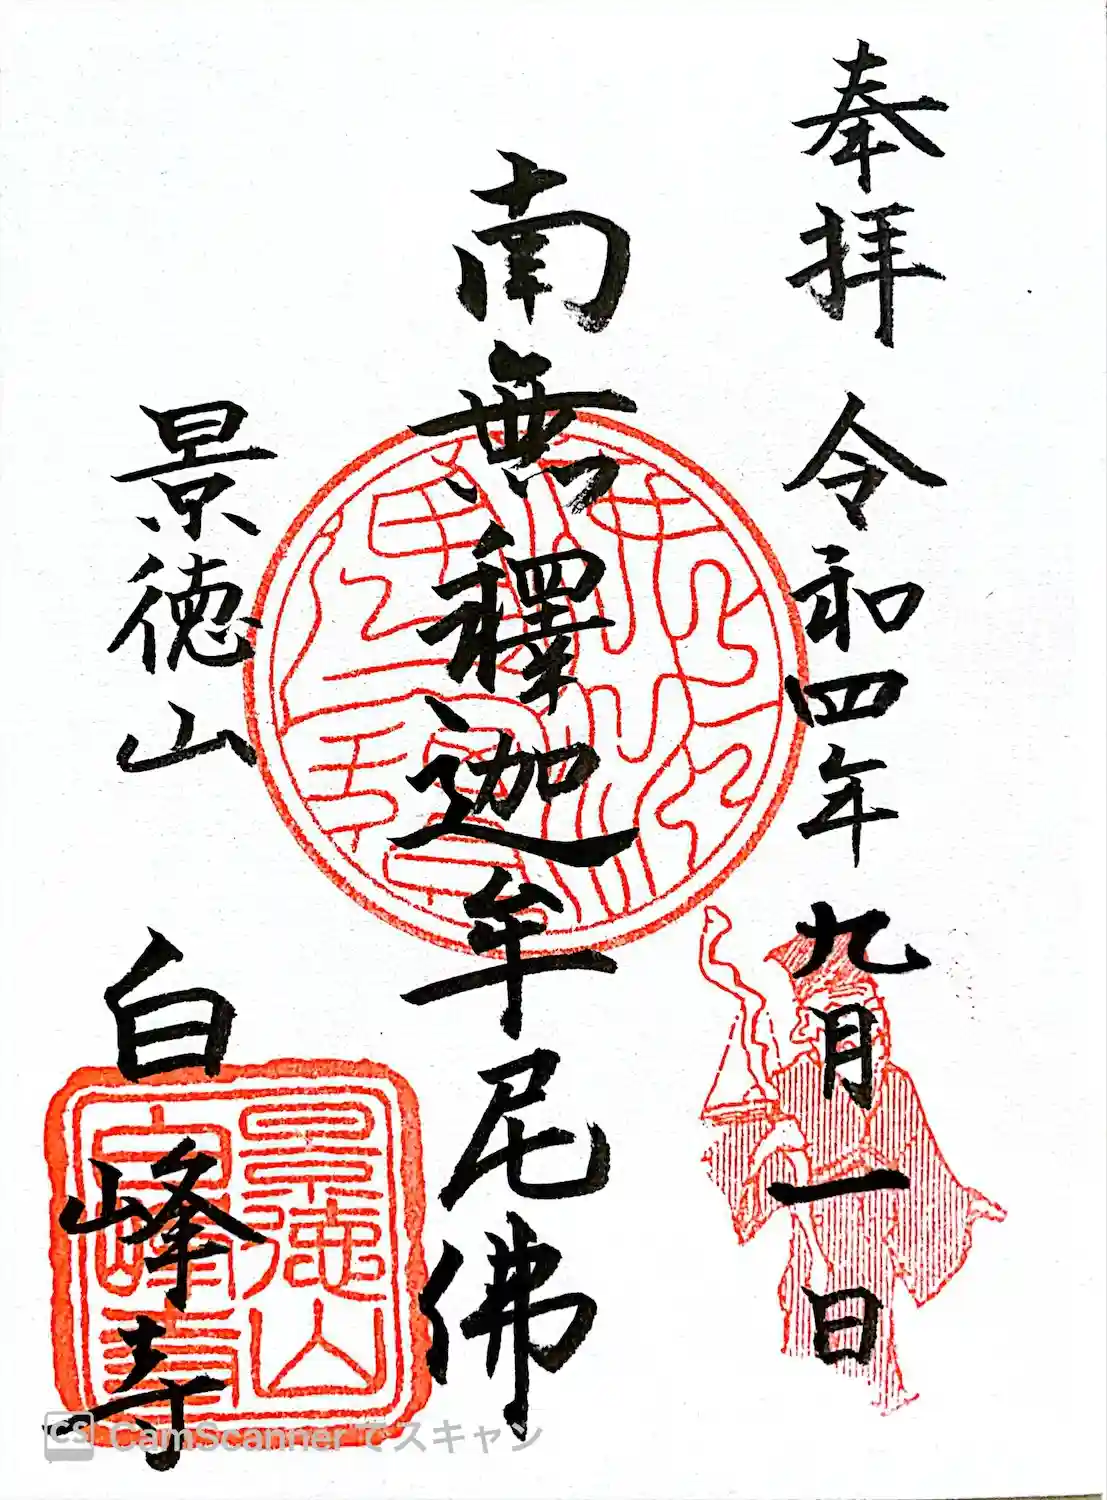 奉拝 令和四年九月一日
南無釋迦牟尼佛
景徳山 白峰寺
景徳山
白峰寺
CS CamScannerでスキャン